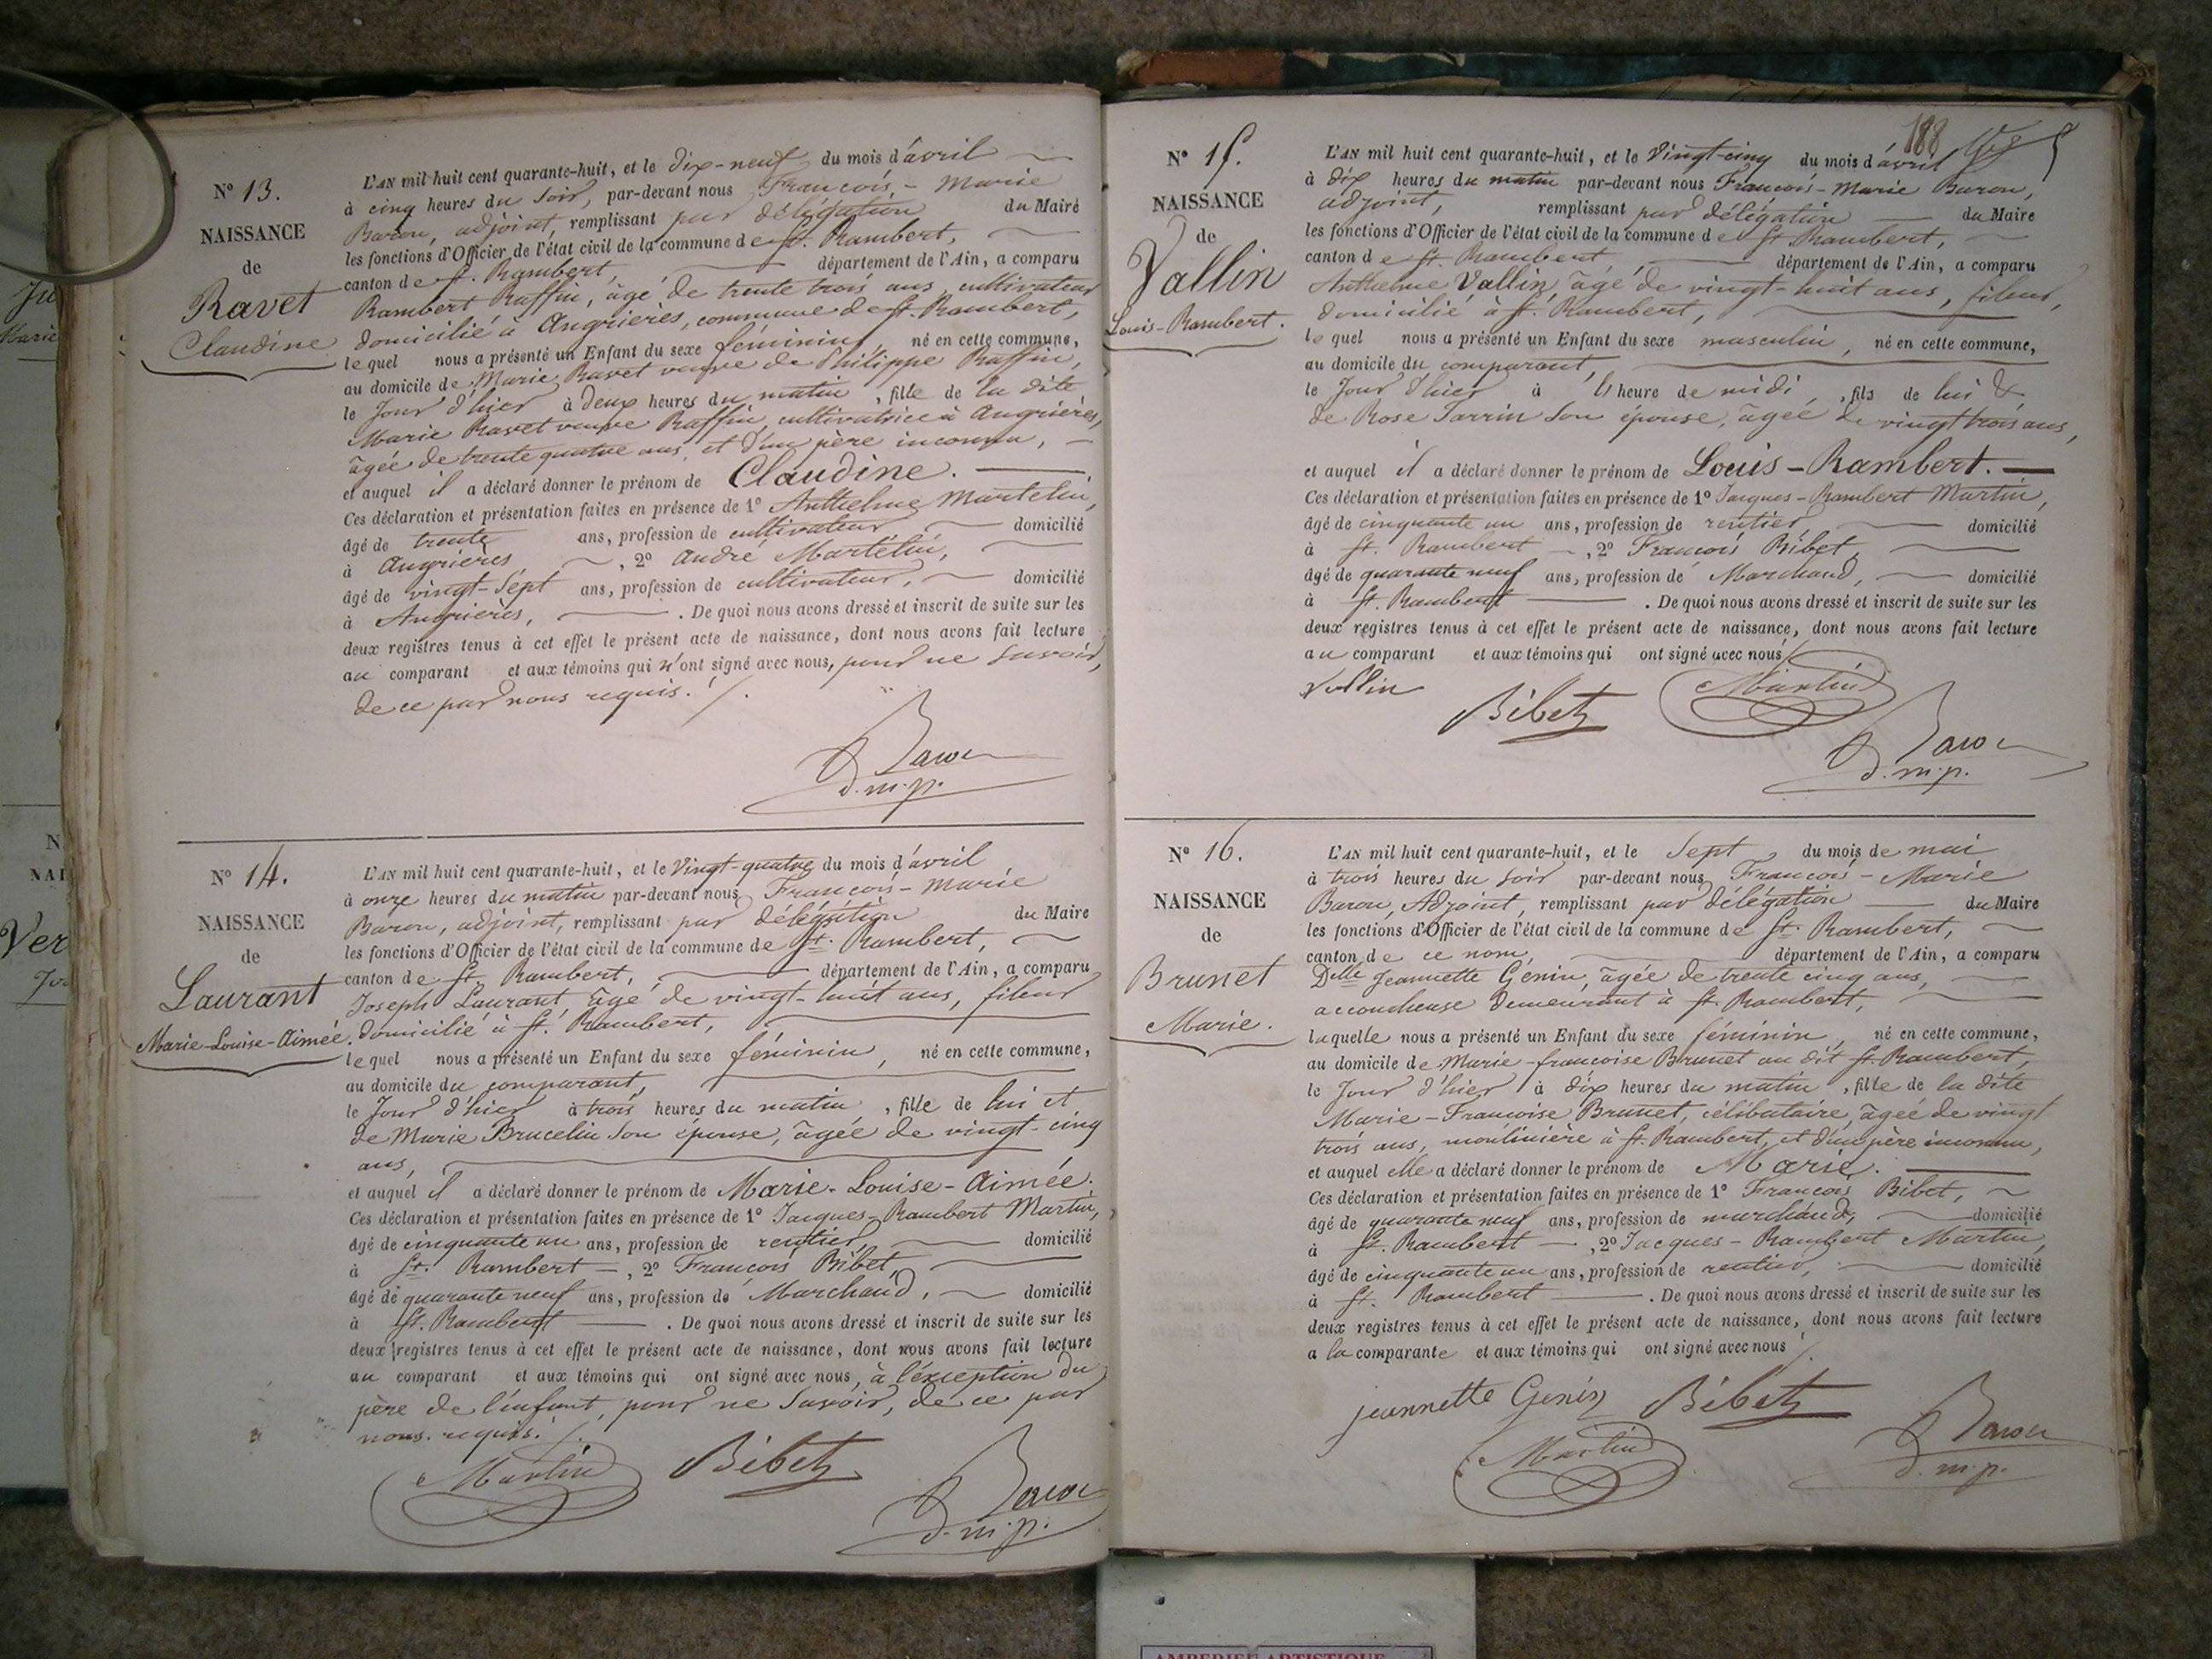 N° 13.
NAISSANCE
de
Ravet
Claudine
L'AN mil huit cent quarante-huit, et le dix-neuf du mois d'avril
à cinq heures du soir, par-devant nous François-Marie
Baron, adjoint, remplissant par délégation du Maire
les fonctions d'Officier de l'état civil de la commune de St. Rambert,
canton de St. Rambert, département de l'Ain, a comparu
Rambert Raffin, âgé de trente trois ans, cultivateur
domicilié à Angrieres, commune de St. Rambert,
lequel nous a présenté un Enfant du sexe féminin, né en cette commune,
au domicile de Marie Ravet veuve de Philippe Raffin,
le Jour d'hier à deux heures du matin, fille de la dite
Marie Ravet veuve Raffin, cultivatrice à Angrières,
âgée de trente quatre ans, et d'un père inconnu,
et auquel il a déclaré donner le prénom de Claudine.
Ces déclaration et présentation faites en présence de 1° Anthelme Martelin,
âgé de trente ans, profession de cultivateur domicilié
à Angrières, 2° André Martelin,
âgé de vingt-sept ans, profession de cultivateur, domicilié
à Angrières, . De quoi nous avons dressé et inscrit de suite sur les
deux registres tenus à cet effet le présent acte de naissance, dont nous avons fait lecture
au comparant et aux témoins qui n'ont signé avec nous, pour ne savoir,
de ce par nous requis. /.
Baron
d.m.p.
N° 14.
NAISSANCE
de
Laurant
Marie-Louise-Aimée.
L'AN mil huit cent quarante-huit, et le Vingt-quatre du mois d'avril
à onze heures du matin par-devant nous François-Marie
Baron, adjoint, remplissant par délégation du Maire
les fonctions d'Officier de l'état civil de la commune de St. Rambert,
canton de St. Rambert, département de l'Ain, a comparu
Joseph Laurant, âgé de vingt-huit ans, fileur
domicilié à St. Rambert,
lequel nous a présenté un Enfant du sexe féminin, né en cette commune,
au domicile du comparant,
le Jour d'hier à trois heures du matin, fille de lui et
de Marie Brucelin son épouse, âgée de vingt-cinq
ans,
et auquel il a déclaré donner le prénom de Marie-Louise-Aimée.
Ces déclaration et présentation faites en présence de 1° Jacques-Rambert Martin,
âgé de cinquante un ans, profession de rentier, domicilié
à St. Rambert, 2° François Bibet,
âgé de quarante neuf ans, profession de Marchand, domicilié
à St. Rambert . De quoi nous avons dressé et inscrit de suite sur les
deux registres tenus à cet effet le présent acte de naissance, dont nous avons fait lecture
au comparant et aux témoins qui ont signé avec nous, à l'exception du
père de l'enfant, pour ne savoir, de ce par
nous requis. /.
Martin Bibet
Baron
d.m.p.
188
N° 15.
NAISSANCE
de
Vallin
Louis-Rambert.
L'AN mil huit cent quarante-huit, et le Vingt-cinq du mois d'avril
à dix heures du matin par-devant nous François-Marie Baron,
adjoint, remplissant par délégation du Maire
les fonctions d'Officier de l'état civil de la commune de St. Rambert,
canton de St. Rambert, département de l'Ain, a comparu
Anthelme Vallin, âgé de vingt-huit ans, fileur,
domicilié à St. Rambert,
lequel nous a présenté un Enfant du sexe masculin, né en cette commune,
au domicile du comparant,
le Jour d'hier à l'heure de midi, fils de lui &
de Rose Tarrin son épouse, âgée de vingt trois ans,
et auquel il a déclaré donner le prénom de Louis-Rambert.
Ces déclaration et présentation faites en présence de 1° Jacques-Rambert Martin,
âgé de cinquante un ans, profession de rentier, domicilié
à St. Rambert, 2° François Bibet,
âgé de quarante neuf ans, profession de Marchand, domicilié
à St. Rambert . De quoi nous avons dressé et inscrit de suite sur les
deux registres tenus à cet effet le présent acte de naissance, dont nous avons fait lecture
au comparant et aux témoins qui ont signé avec nous /.
Vallin Bibet Martin
Baron
d.m.p.
N° 16.
NAISSANCE
de
Brunet
Marie.
L'AN mil huit cent quarante-huit, et le Sept du mois de mai
à trois heures du soir par-devant nous François-Marie
Baron, Adjoint, remplissant par délégation du Maire
les fonctions d'Officier de l'état civil de la commune de St. Rambert,
canton de ce nom, département de l'Ain, a comparu
Delle Jeannette Genin, âgée de trente cinq ans,
accoucheuse demeurant à St. Rambert,
laquelle nous a présenté un Enfant du sexe féminin, né en cette commune,
au domicile de Marie-françoise Brunet au dit St. Rambert,
le Jour d'hier à dix heures du matin, fille de la dite
Marie-Françoise Brunet, célibataire, âgée de vingt
trois ans, moulinière à St. Rambert, et d'un père inconnu,
et auquel elle a déclaré donner le prénom de Marie.
Ces déclaration et présentation faites en présence de 1° François Bibet,
âgé de quarante neuf ans, profession de marchand, domicilié
à St. Rambert, 2° Jacques-Rambert Martin,
âgé de cinquante un ans, profession de rentier, domicilié
à St. Rambert . De quoi nous avons dressé et inscrit de suite sur les
deux registres tenus à cet effet le présent acte de naissance, dont nous avons fait lecture
a la comparante et aux témoins qui ont signé avec nous /.
jeannette Genin Bibet
Martin Baron
d.m.p.
AMBERIEU ARTISTIQUE